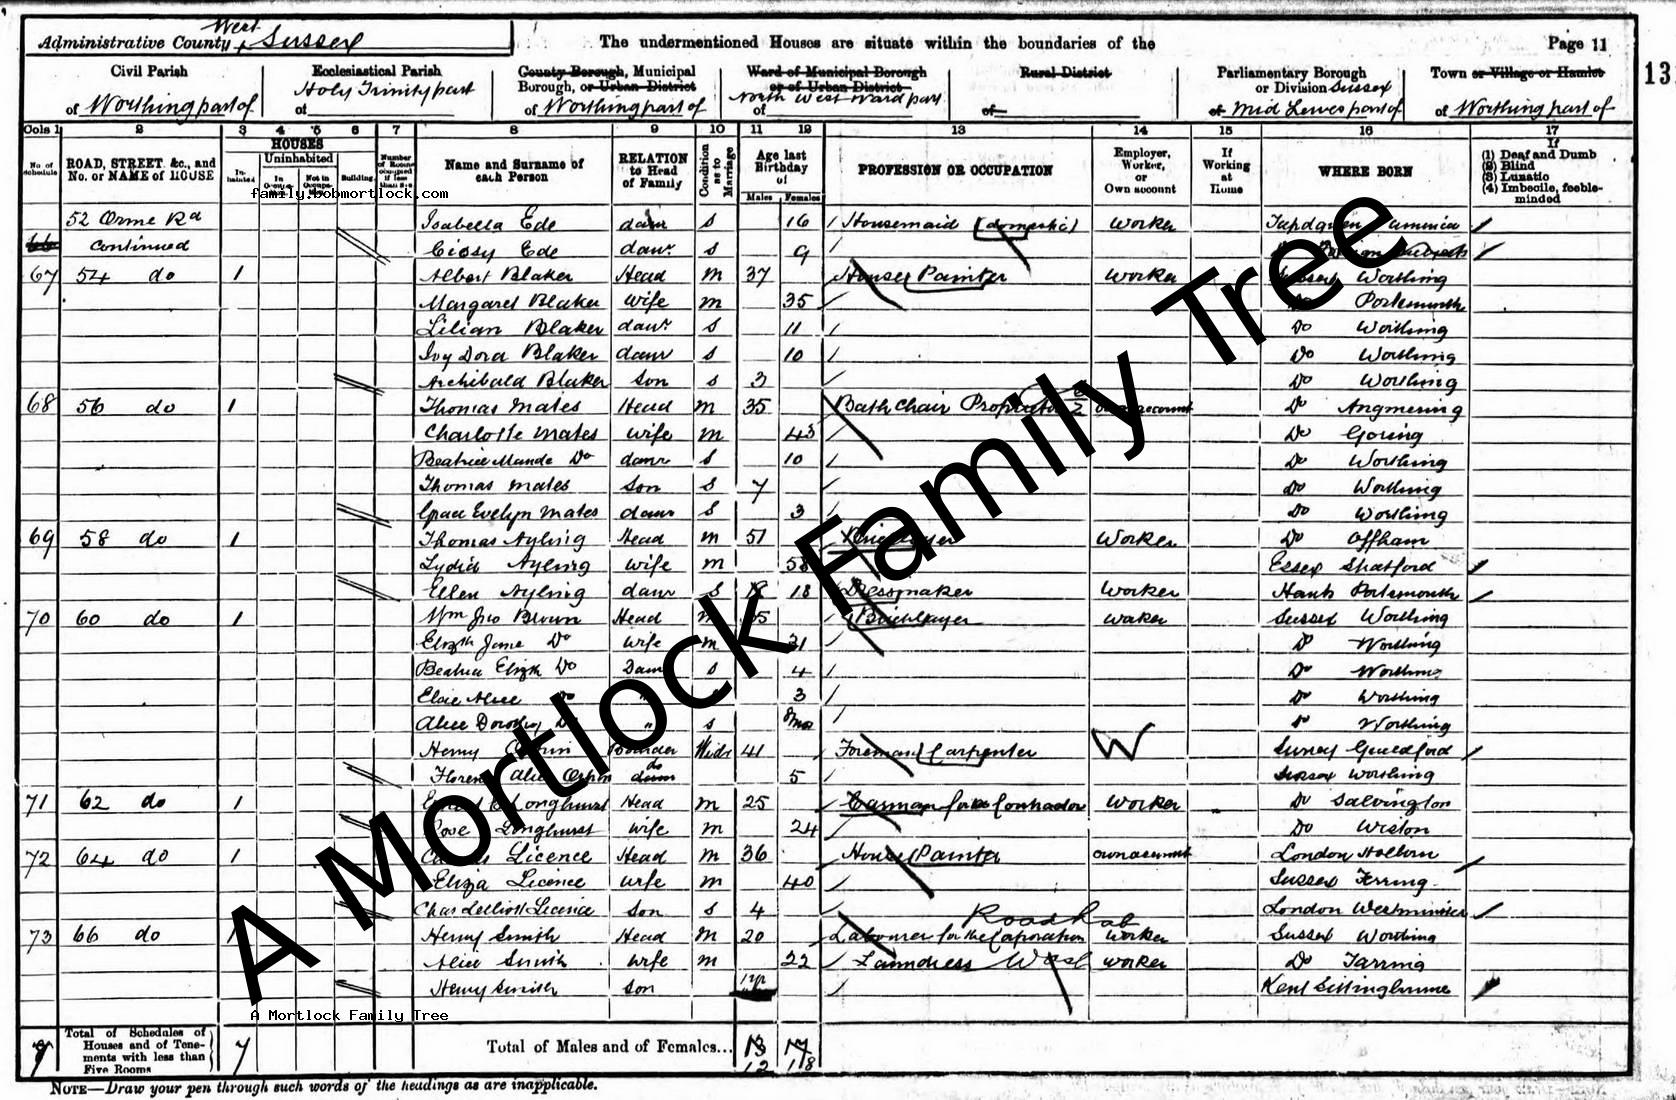 Administrative County West Sussex The undermentioned Houses are situate within the boundaries of the Page 11
Civil Parish Ecclesiastical Parish County Borough, Municipal Borough, or Urban District Ward of Municipal Borough or of Urban District Rural District Parliamentary Borough or Division Sussex Town or Village or Hamlet 13
of Worthing part of Holy Trinity part of of Worthing part of North West Ward part of of of Mid Lewes part of of Worthing part of
Cols 1 2 3 4 5 6 7 8 9 10 11 12 13 14 15 16 17
No. of Schedule ROAD, STREET, &c., and No. or NAME of HOUSE HOUSES Inhabited Uninhabited In Occupation Not in Occupation Building Number of Rooms occupied if less than five Name and Surname of each Person RELATION to Head of Family Condition as to Marriage Age last Birthday of Males Females PROFESSION OR OCCUPATION Employer, Worker, or Own account If Working at Home WHERE BORN If (1) Deaf and Dumb (2) Blind (3) Lunatic (4) Imbecile, feeble-minded
family.bobmortlock.com
52 Orme Rd Isabella Ede daur S 16 Housemaid (domestic) Worker Jamaica
Continued Cissy Ede daur. S 9
67 54 do 1 Albert Blaker Head M 37 House Painter Worker Sussex Worthing
Margaret Blaker Wife M 35 Do Portsmouth
Lilian Blaker daur S 11 Do Worthing
Ivy Dora Blaker daur S 10 Do Worthing
Archibald Blaker Son S 3 Do Worthing
68 56 do 1 Thomas Mates Head M 35 Bath Chair Proprietor own account Do Angmering
Charlotte Mates Wife M 43 Do Goring
Beatrice Maude Do daur S 10 Do Worthing
Thomas Mates Son S 7 Do Worthing
Grace Evelyn Mates daur S 3 Do Worthing
69 58 do 1 Thomas Ayling Head M 51 Bricklayer Worker Do Offham
Lydia Ayling Wife M 58 Essex Stratford
Ellen Ayling daur S 18 Dressmaker Worker Hants Portsmouth
70 60 do 1 Wm Jno Brown Head M 35 Bricklayer Worker Sussex Worthing
Elizth Jane Do Wife M 31 Do Worthing
Beatrice Elizth Do Daur S 4 Do Worthing
Elsie Alice Do " 3 Do Worthing
Alice Dorothy Do " S 8 mos Do Worthing
Henry Boarder Widr 41 Foreman Carpenter W Surrey Guildford
Florence Alice do daur 5 Sussex Worthing
71 62 do 1 Longhurst Head M 25 Carman for a Contractor Worker Do Salvington
Longhurst Wife M 24 Do Wiston
72 64 do 1 Licence Head M 36 House Painter own account London Holborn
Eliza Licence Wife M 40 Sussex Ferring
Chas Licence Son S 4 London Westminster
73 66 do 1 Henry Smith Head M 20 Labourer for the Corporation Road Lab Worker Sussex Worthing
Alice Smith Wife M 22 Laundress Wash Worker Do Tarring
Henry Smith Son 1 yr Kent Sittingbourne
A Mortlock Family Tree
A Mortlock Family Tree
7 Total of Schedules of Houses and of Tenements with less than Five Rooms 7 Total of Males and of Females... 13 17
12 18
NOTE—Draw your pen through such words of the headings as are inapplicable.